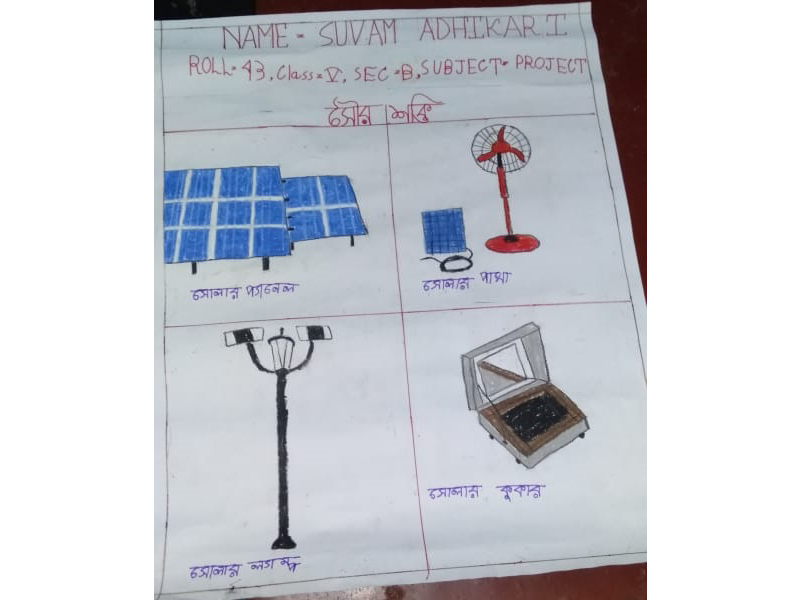 NAME = SUVAM ADHIKARI
ROLL = 43, Class = V, SEC = B, SUBJECT = PROJECT
সৌর শক্তি
সোলার প্যানেল
সোলার পাখা
সোলার ল্যাম্প
সোলার কুকার